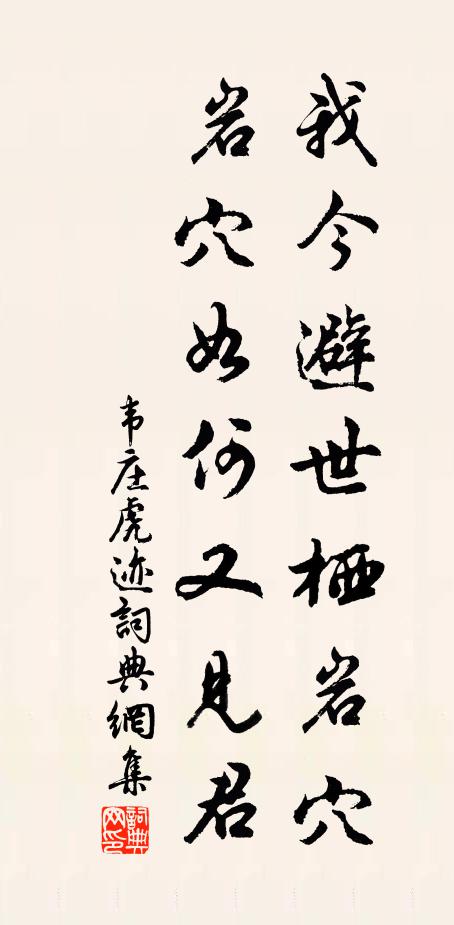 我今避世栖岩穴
岩穴如何又见君
韦庄虎迹詞典網集
詞典网印